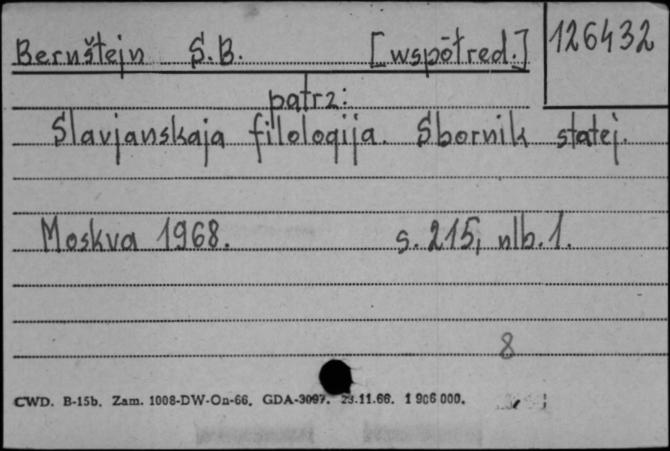 Bernštejn S.B. [współred.] 126432
patrz:
Slavjanskaja filologija. Sbornik statej.
Moskva 1968. s. 215, nlb. 1.
8
CWD. B-15b. Zam. 1008-DW-On-66. GDA-3097. 23.11.66. 1 906 000.